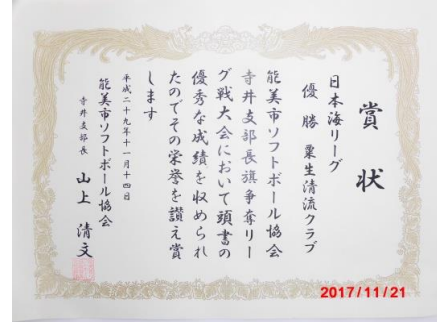 賞状
日本海リーグ
優勝 粟生清流クラブ
能美市ソフトボール協会
寺井支部長旗争奪リー
グ戦大会において頭書の
優秀な成績を収められ
たのでその栄誉を讃え賞
します
平成二十九年十一月十四日
能美市ソフトボール協会
寺井支部長 山上清文
2017/11/21